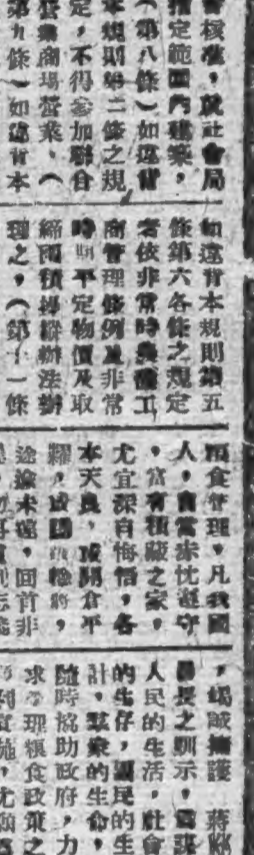 會核准，及社會局
指定範圍內建築，
（第八條）如違背
本規則第二條之規
定，不得參加聯合
營業商場營業，（
第九條）如違背本
如違背本規則第五
條第六各條之規定
者依非常時期農礦工
商管理條例及非常
時期平定物價及取
締囤積操縱辦法辦
理之，（第十一條
糧食管理，凡我國
人，自當恪忱遵守
，富有積藏之家，
尤宜深自悔悟，各
本天良，或開倉平
糶，或
途未遠，回首非
，竭誠擁護 蔣
長之訓示，
人民的生活，社會
的生存，國民的生
計，羣眾的生命，
隨時協助政府，力
求管理糧食政策之